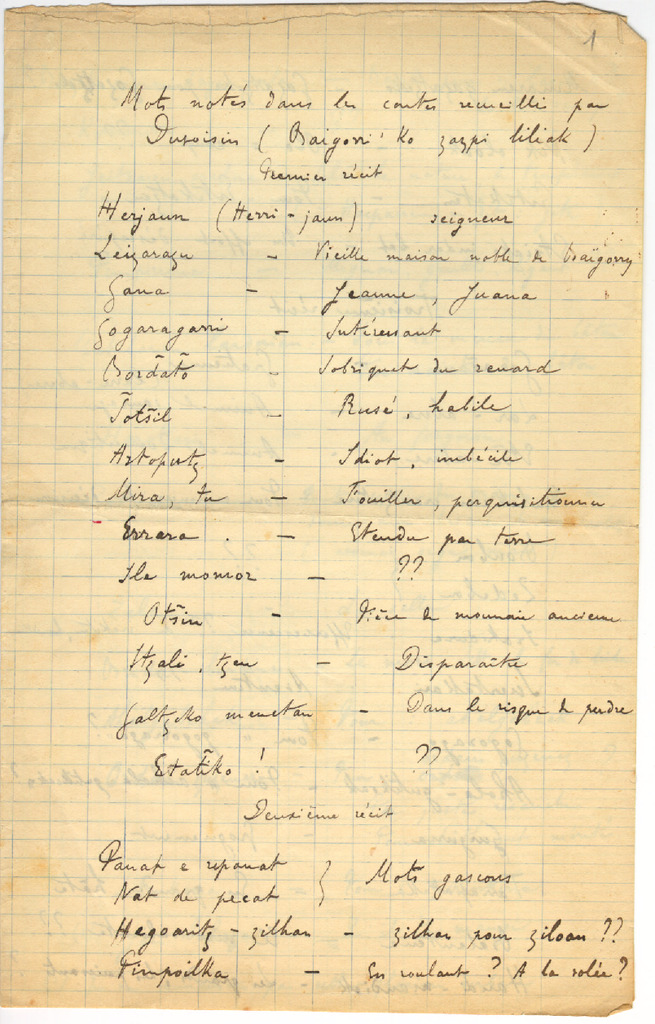 1
Mots notés dans les contes recueillis par
Duvoisin (Baigorri'ko zazpi liliak)
Premier récit
Herjaun (Herri-jaun) seigneur
Leizarazu - Vieille maison noble de Baïgorry
Gana - Jeanne, Juana
Gogaragarri - Intéressant
Bordãto - Sobriquet du renard
Totsil - Rusé, habile
Astoputz - Idiot, imbécile
Mira, tu - Fouiller, perquisitionner
Errara. - Etendu par terre
Ile momor - ??
Otsin - Pièce de monnaie ancienne
Itzali, tzen - Disparaître
Galtzeko menetan - Dans le risque de perdre
Etatiko! - ??
Deuxième récit
Panat e repanat
Nat de pecat } Mots gascons
Hegoaritz-zilhan - zilhan pour ziloan ??
Pimpoilka - En roulant ? A la volée ?